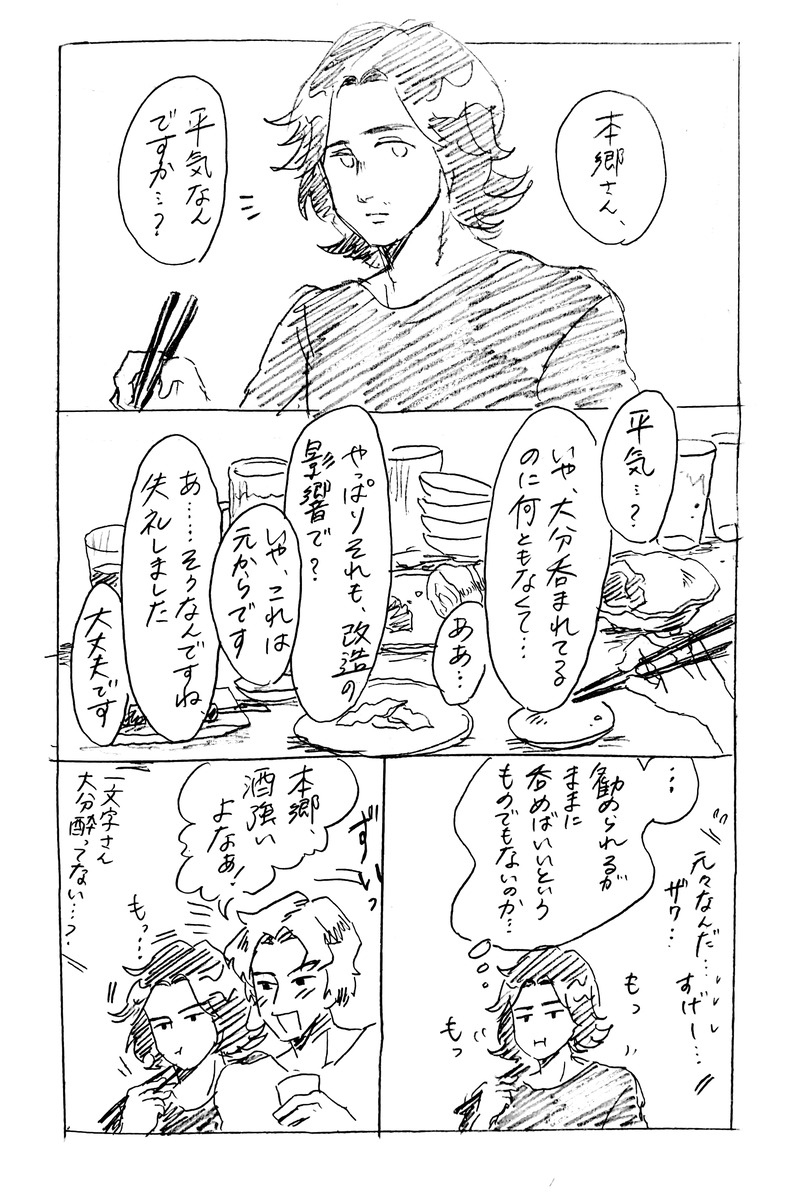 本郷さん、
平気なん
ですか…?
平気…?
いや、大分呑まれてる
のに何ともなくて…
ああ…
やっぱりそれも、改造の
影響で?
いや、これは
元からです
あ……そうなんですね、
失礼しました
大丈夫です
元々なんだ…
ザワ…
すげー…
…
勧められるが
ままに
呑めばいいという
ものでもないのか…
もっ
もっ
ずいっ
本郷、
酒強い
よなぁ!
もっ…
一文字さん
大分酔ってない…?